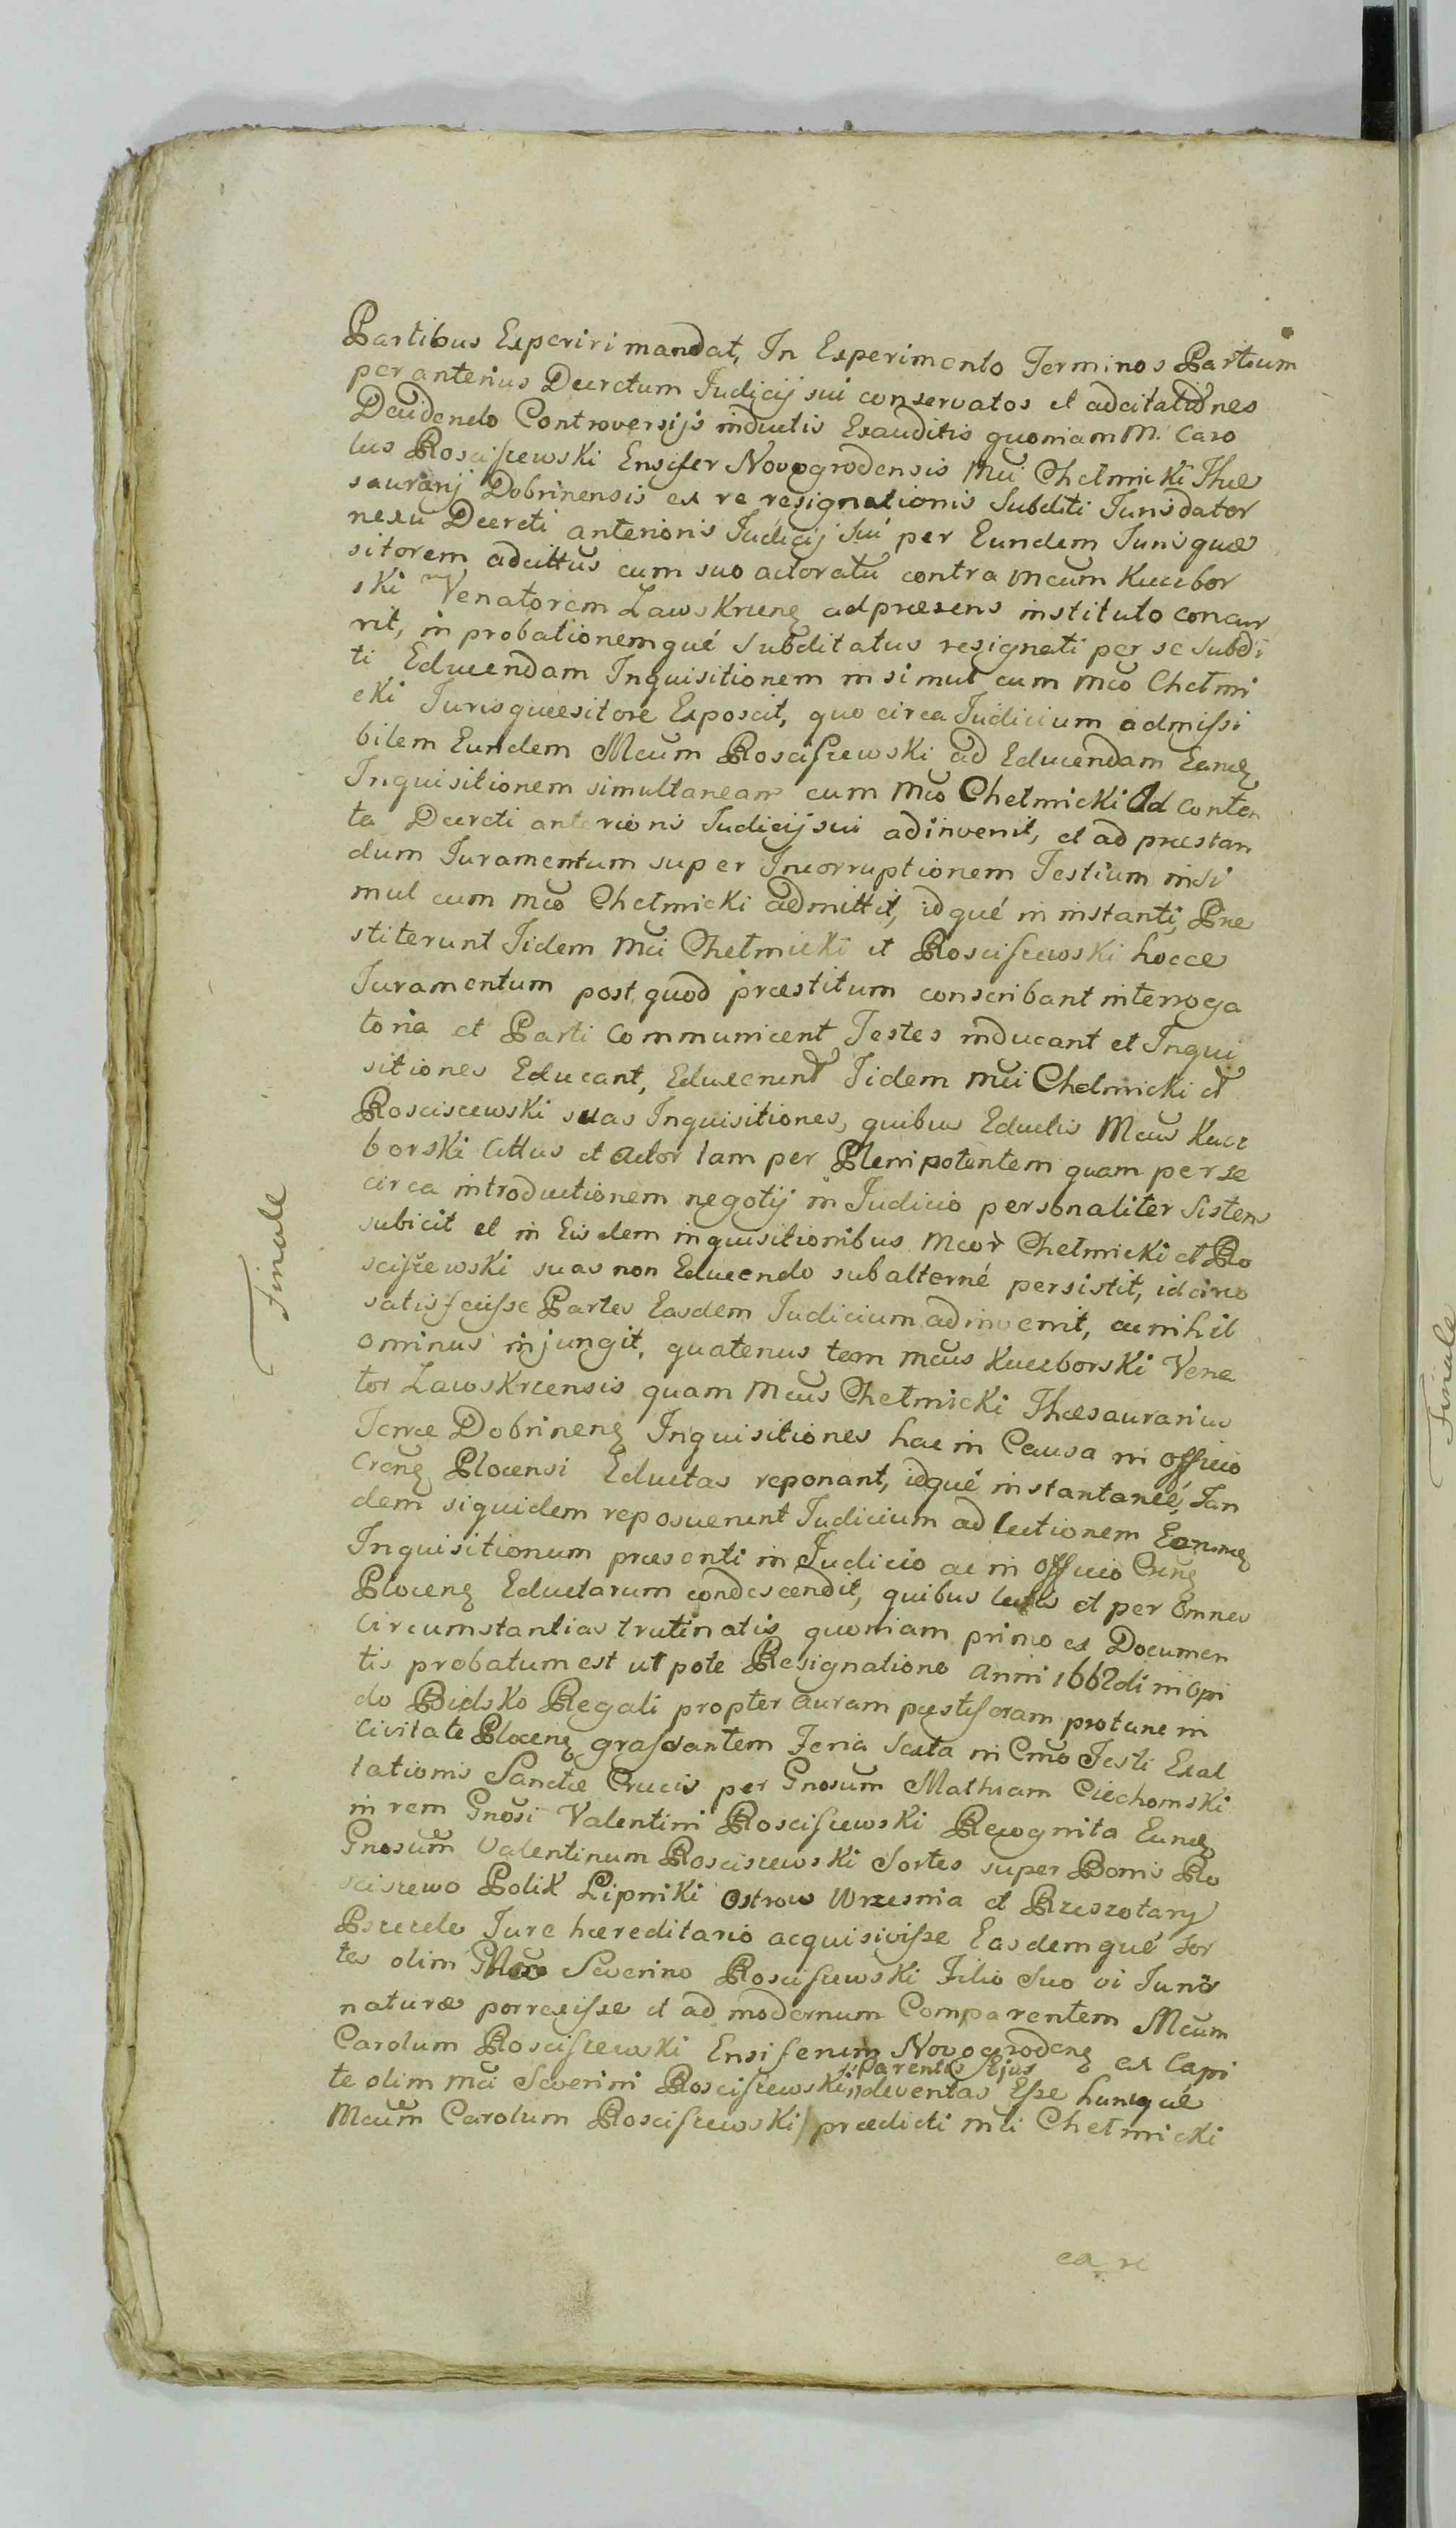 Partibus Experiri mandat, In Experimento Terminos Partium
per anterius Decretum Iudicij sui conservatos et adcitationes
Decidendo Controversijs inductis Exauditis quoniam M. Caro
lus Rosciszewski Ensifer Novogrodensis Mci Chełmicki Thæ
saurarij Dobrinensis ex re resignationis Subditi Iurisdator
nexu Decreti anterioris Iudicij Sui per Eundem Iurisquæ
sitorem adcittus cum suo actoratu contra Mcum Kuczbor
ski Venatorem Zawskrzens ad præsens instituto concur
rit, in probationemqué Subditatus resignati per se Subdi
ti Educendam Inquisitionem insimul cum Mco Chełmi
cki Iurisquæsitore Exposcit, quo circa Iudicium admissi
bilem Eundem Mcum Rosciszewski ad Educendam Eand
Inquisitionem simultaneam cum Mco Chełmicki Ad conten
ta Decreti anterioris Iudicij sui adinvenit, et ad præstan
dum Iuramentum super Incorruptionem Testium insi
mul cum Mco Chełmicki admittit, idqué in instanti, Præ
stiterunt Iidem Mci Chełmicki et Rosciszewski hocce
Iuramentum post quod præstitum conscribant interroga
toria et Parti Communicent Testes inducant et Inqui
sitiones Educant, Eduxerunt Iidem Mci Chełmicki et
Rosciszewski suas Inquisitiones, quibus Eductis Mcus Kucz
borski Cittus et Actor tam per Plenipotentem quam per se
circa introductionem negotij in Iudicio personaliter Sistens
subicit et in Eisdem inquisitionibus Mcor Chełmicki et Ro
sciszewski suas non Educendo subalterné persistit, idcirco
satisfecisse Partes Easdem Iudicium adinvenit, ac nihil
ominus injungit, quatenus tam Mcus Kuczborski Vena
tor Zawskrzensis quam Mcus Chełmicki Thæsaurarius
Terræ Dobrinens Inquisitiones hac in Causa in officio
Crens Plocensi Eductas reponant, idqué instantaneé, Tan
dem siquidem reposuerunt Iudicium ad lectionem Earund
Inquisitionum præsenti in Iudicio ac in officio Crens
Plocens Eductarum condescendit, quibus lectis et per Omnes
Circumstantias trutinatis quoniam primo ex Documen
tis probatum est ut pote Resignatione Anni 1662di in Opi
do Bielsko Regali propter auram pestiferam protunc in
Civitate Plocens grassantem Feria Sexta in Cmo Festi Exal
tationis Sanctæ Crucis per Gnosum Mathiam Ciechomski
in rem Gnosi Valentini Rosciszewski Recognita Eund
Gnosum Valentinum Rosciszewski Sortes super Bonis Ro
sciszewo Polik Lipniki Ostrow Wrzesnia et Rzeszotary
Pszczele Iure hæreditario acquisivisse Easdemqué Sor
tes olim Mco Severino Rosciszewski Filio Suo vi Iuris
naturæ porrexisse et ad modernum Comparentem Mcum
Carolum Rosciszewski Ensiferum Novogrodens ex Capi
Parentis Ejus
te olim Mci Severini Rosciszewski deventas Esse huncqué
Mcum Carolum Rosciszewski prædicti Mci Chełmicki
ea re
Finale
Finale